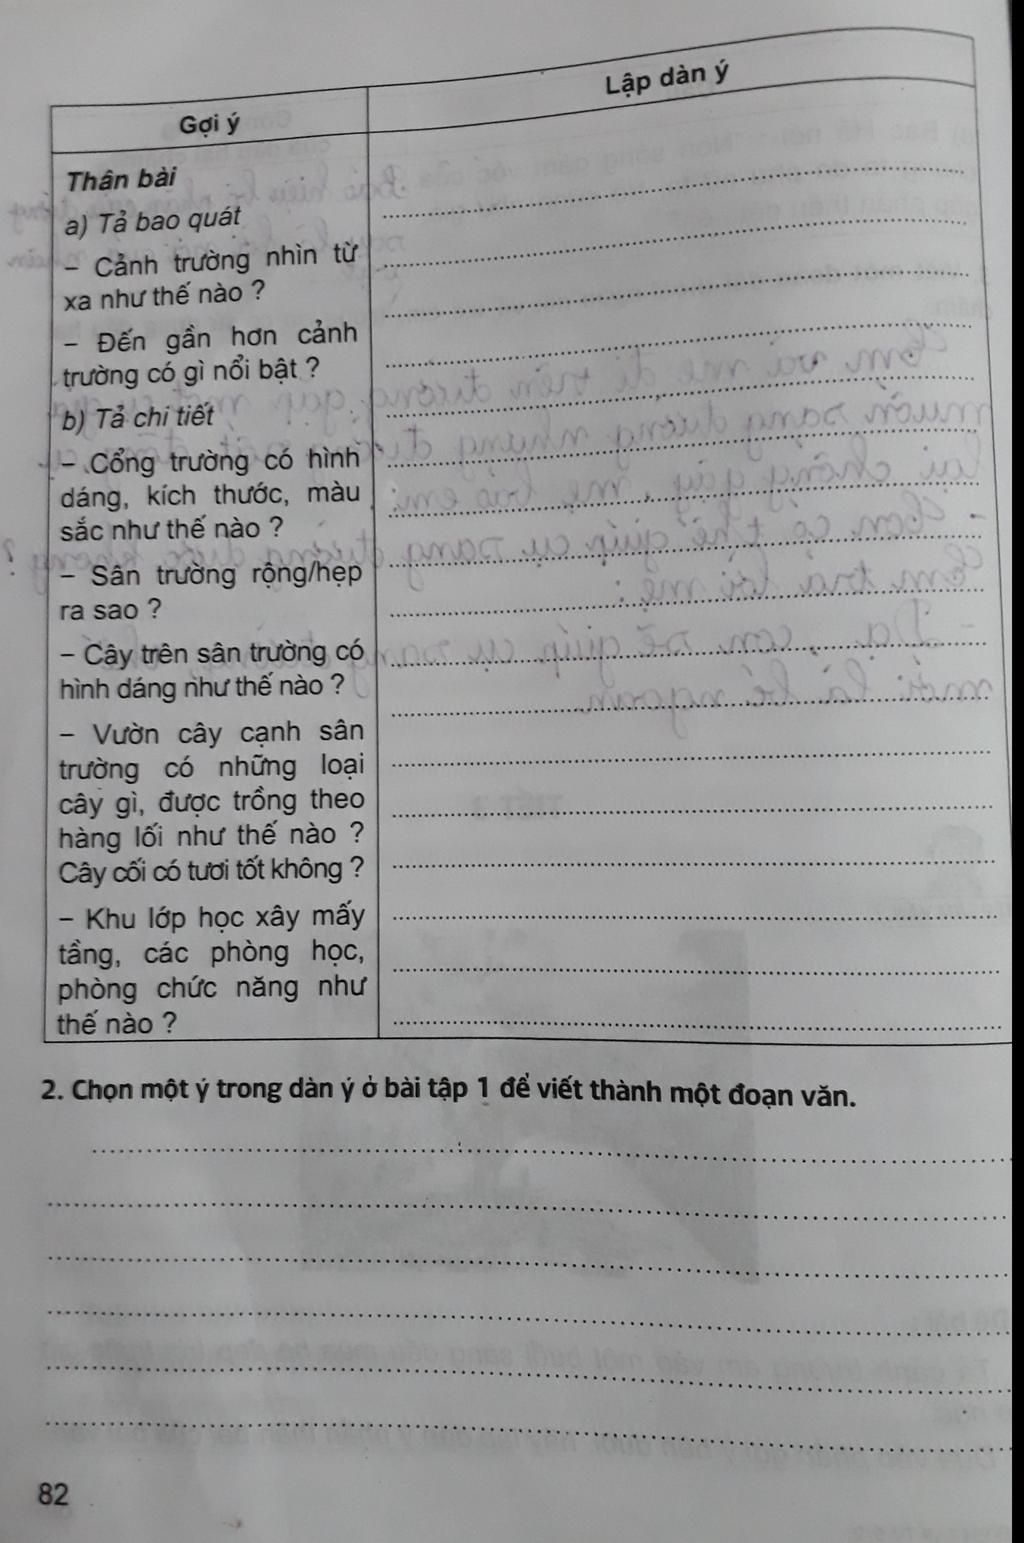 Gợi ý
Lập dàn ý
Thân bài
a) Tả bao quát
– Cảnh trường nhìn từ
xa như thế nào ?
– Đến gần hơn cảnh
trường có gì nổi bật ?
b) Tả chi tiết
– Cổng trường có hình
dáng, kích thước, màu
sắc như thế nào ?
– Sân trường rộng/hẹp
ra sao ?
– Cây trên sân trường có
hình dáng như thế nào ?
– Vườn cây cạnh sân
trường có những loại
cây gì, được trồng theo
hàng lối như thế nào ?
Cây cối có tươi tốt không ?
– Khu lớp học xây mấy
tầng, các phòng học,
phòng chức năng như
thế nào ?
2. Chọn một ý trong dàn ý ở bài tập 1 để viết thành một đoạn văn.
82